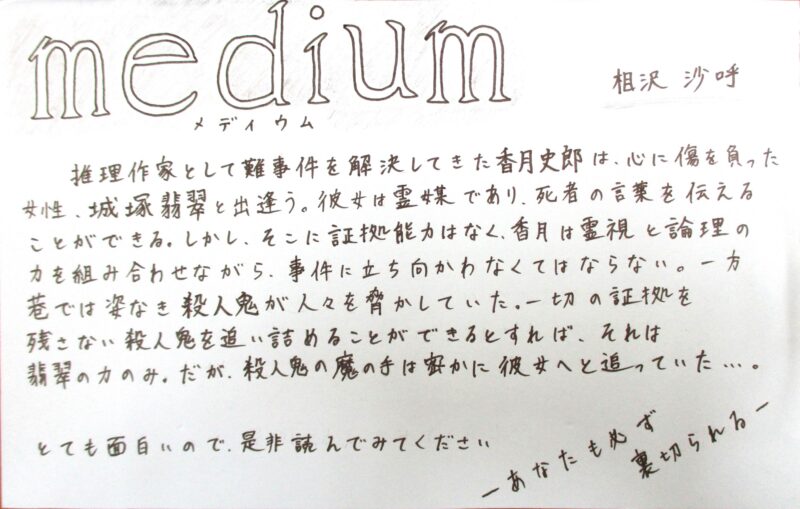 medium
メディウム
相沢 沙呼
推理作家として難事件を解決してきた香月史郎は、心に傷を負った
女性、城塚翡翠と出逢う。彼女は霊媒であり、死者の言葉を伝える
ことができる。しかし、そこに証拠能力はなく、香月は霊視と論理の
力を組み合わせながら、事件に立ち向かわなくてはならない。一方
巷では姿なき殺人鬼が人々を脅かしていた。一切の証拠を
残さない殺人鬼を追い詰めることができるとすれば、それは
翡翠の力のみ。だが、殺人鬼の魔の手は密かに彼女へと迫っていた…。
とても面白いので、是非読んでみてください
―あなたも必ず
裏切られる―